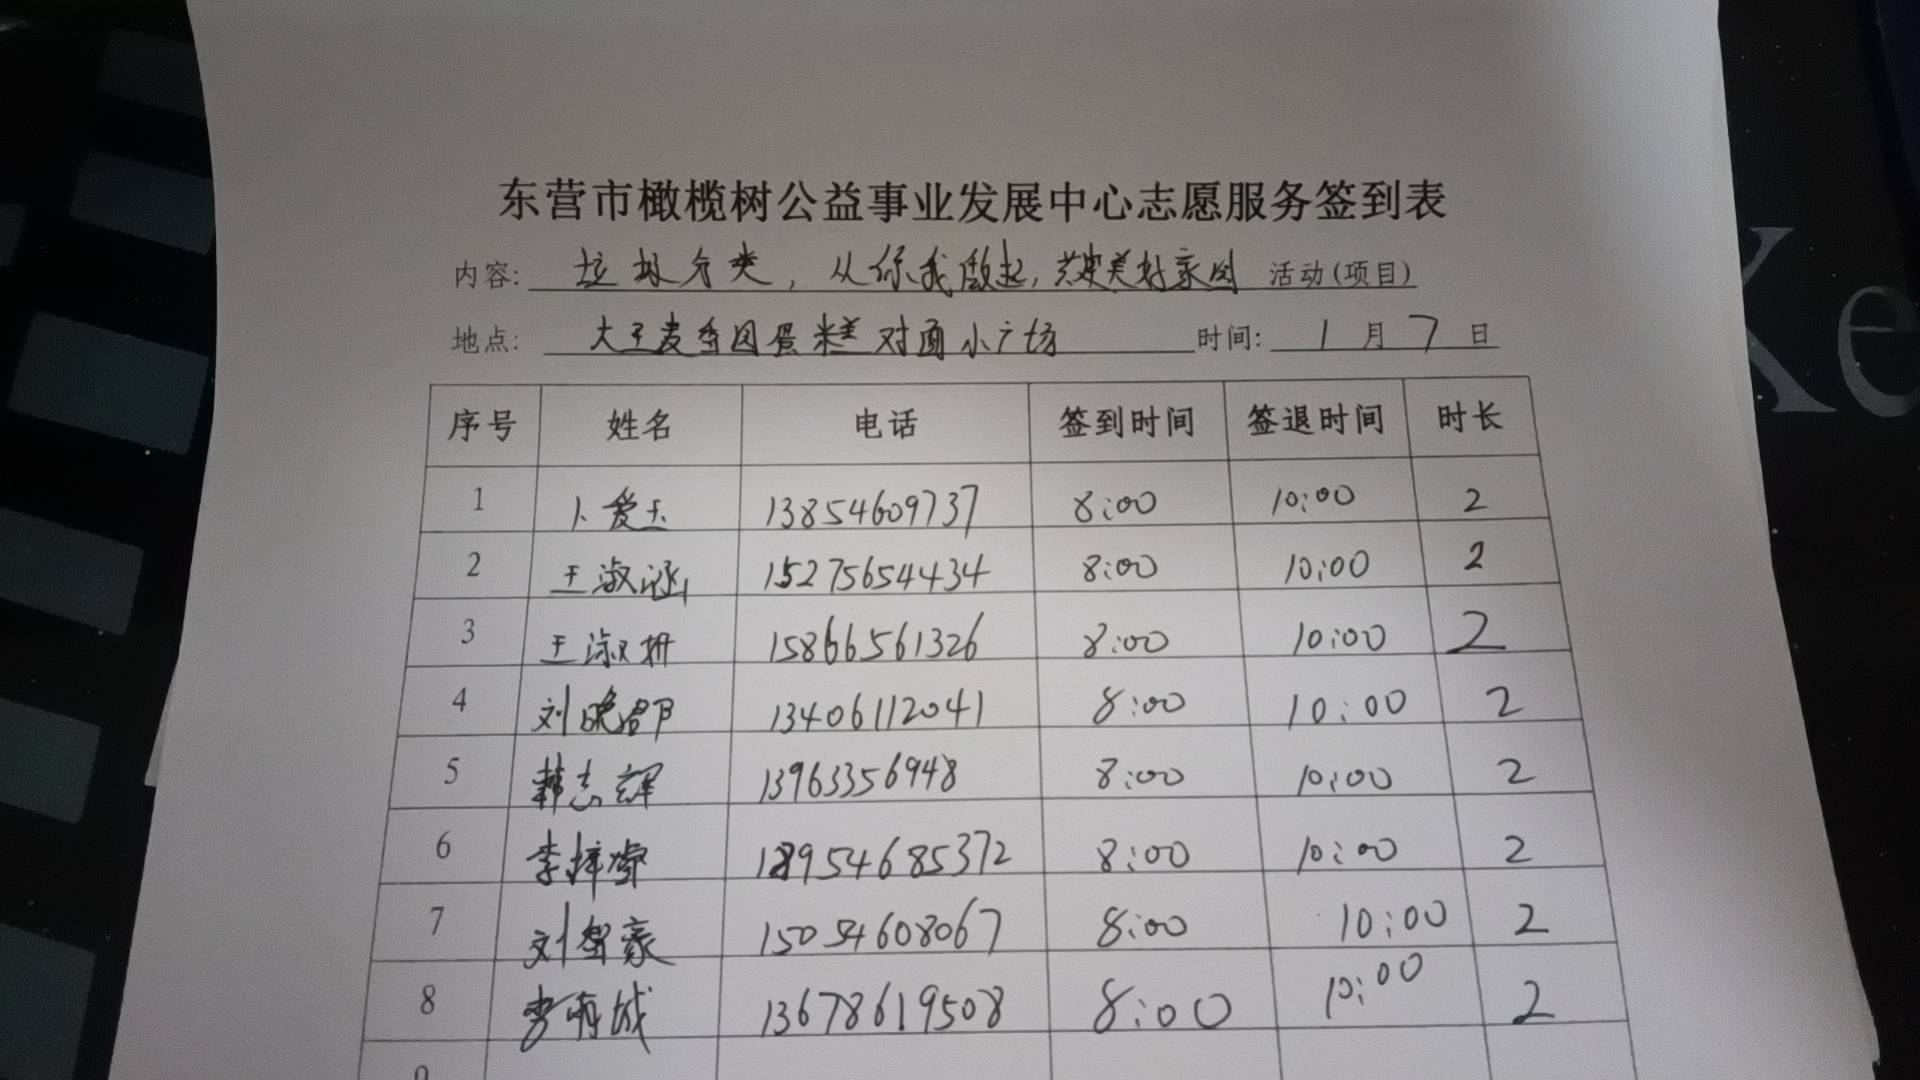 东营市橄榄树公益事业发展中心志愿服务签到表
内容: 垃圾分类，从你我做起，共建美好家园 活动(项目)
地点: 大王麦香园蛋糕对面小广场 时间: 1月7日
序号 姓名 电话 签到时间 签退时间 时长
1 卜爱玉 13854609737 8:00 10:00 2
2 王淑涵 15275654434 8:00 10:00 2
3 王淑妍 15866561326 8:00 10:00 2
4 刘晓 13406112041 8:00 10:00 2
5 韩志辉 13963356948 8:00 10:00 2
6 李梓睿 18954685372 8:00 10:00 2
7 刘智豪 15054608067 8:00 10:00 2
8 13678619508 8:00 10:00 2
Ke